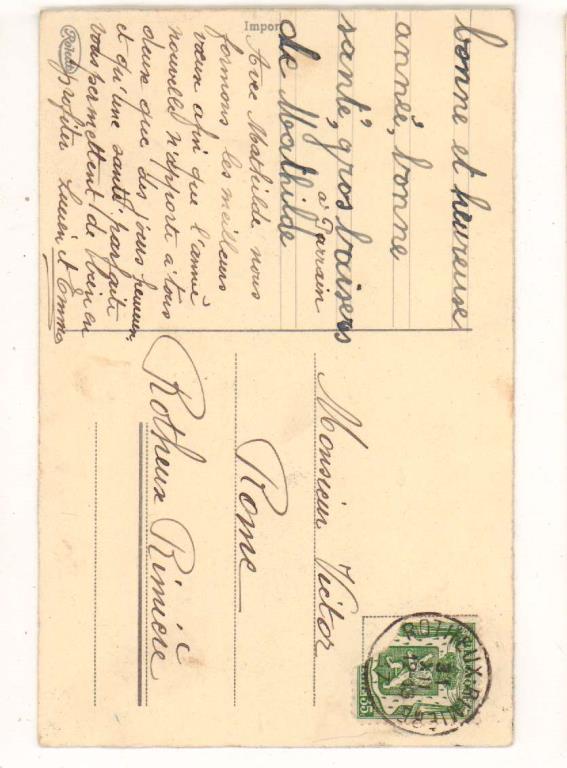 bonne et heureuse
année, bonne
santé, gros baisers
à Parrain
de Mathilde
Impor
Avec Mathilde nous
formons les meilleurs
vœux afin que l'année
nouvelle n'apporte à tous
deux que des jours heureux
et qu'une santé parfaite
vous permettent de bien en
profiter Lucien et Emma
Monsieur Victor
Rome
Rotheux Rimière
ROTHEUX-RIMIERE
35